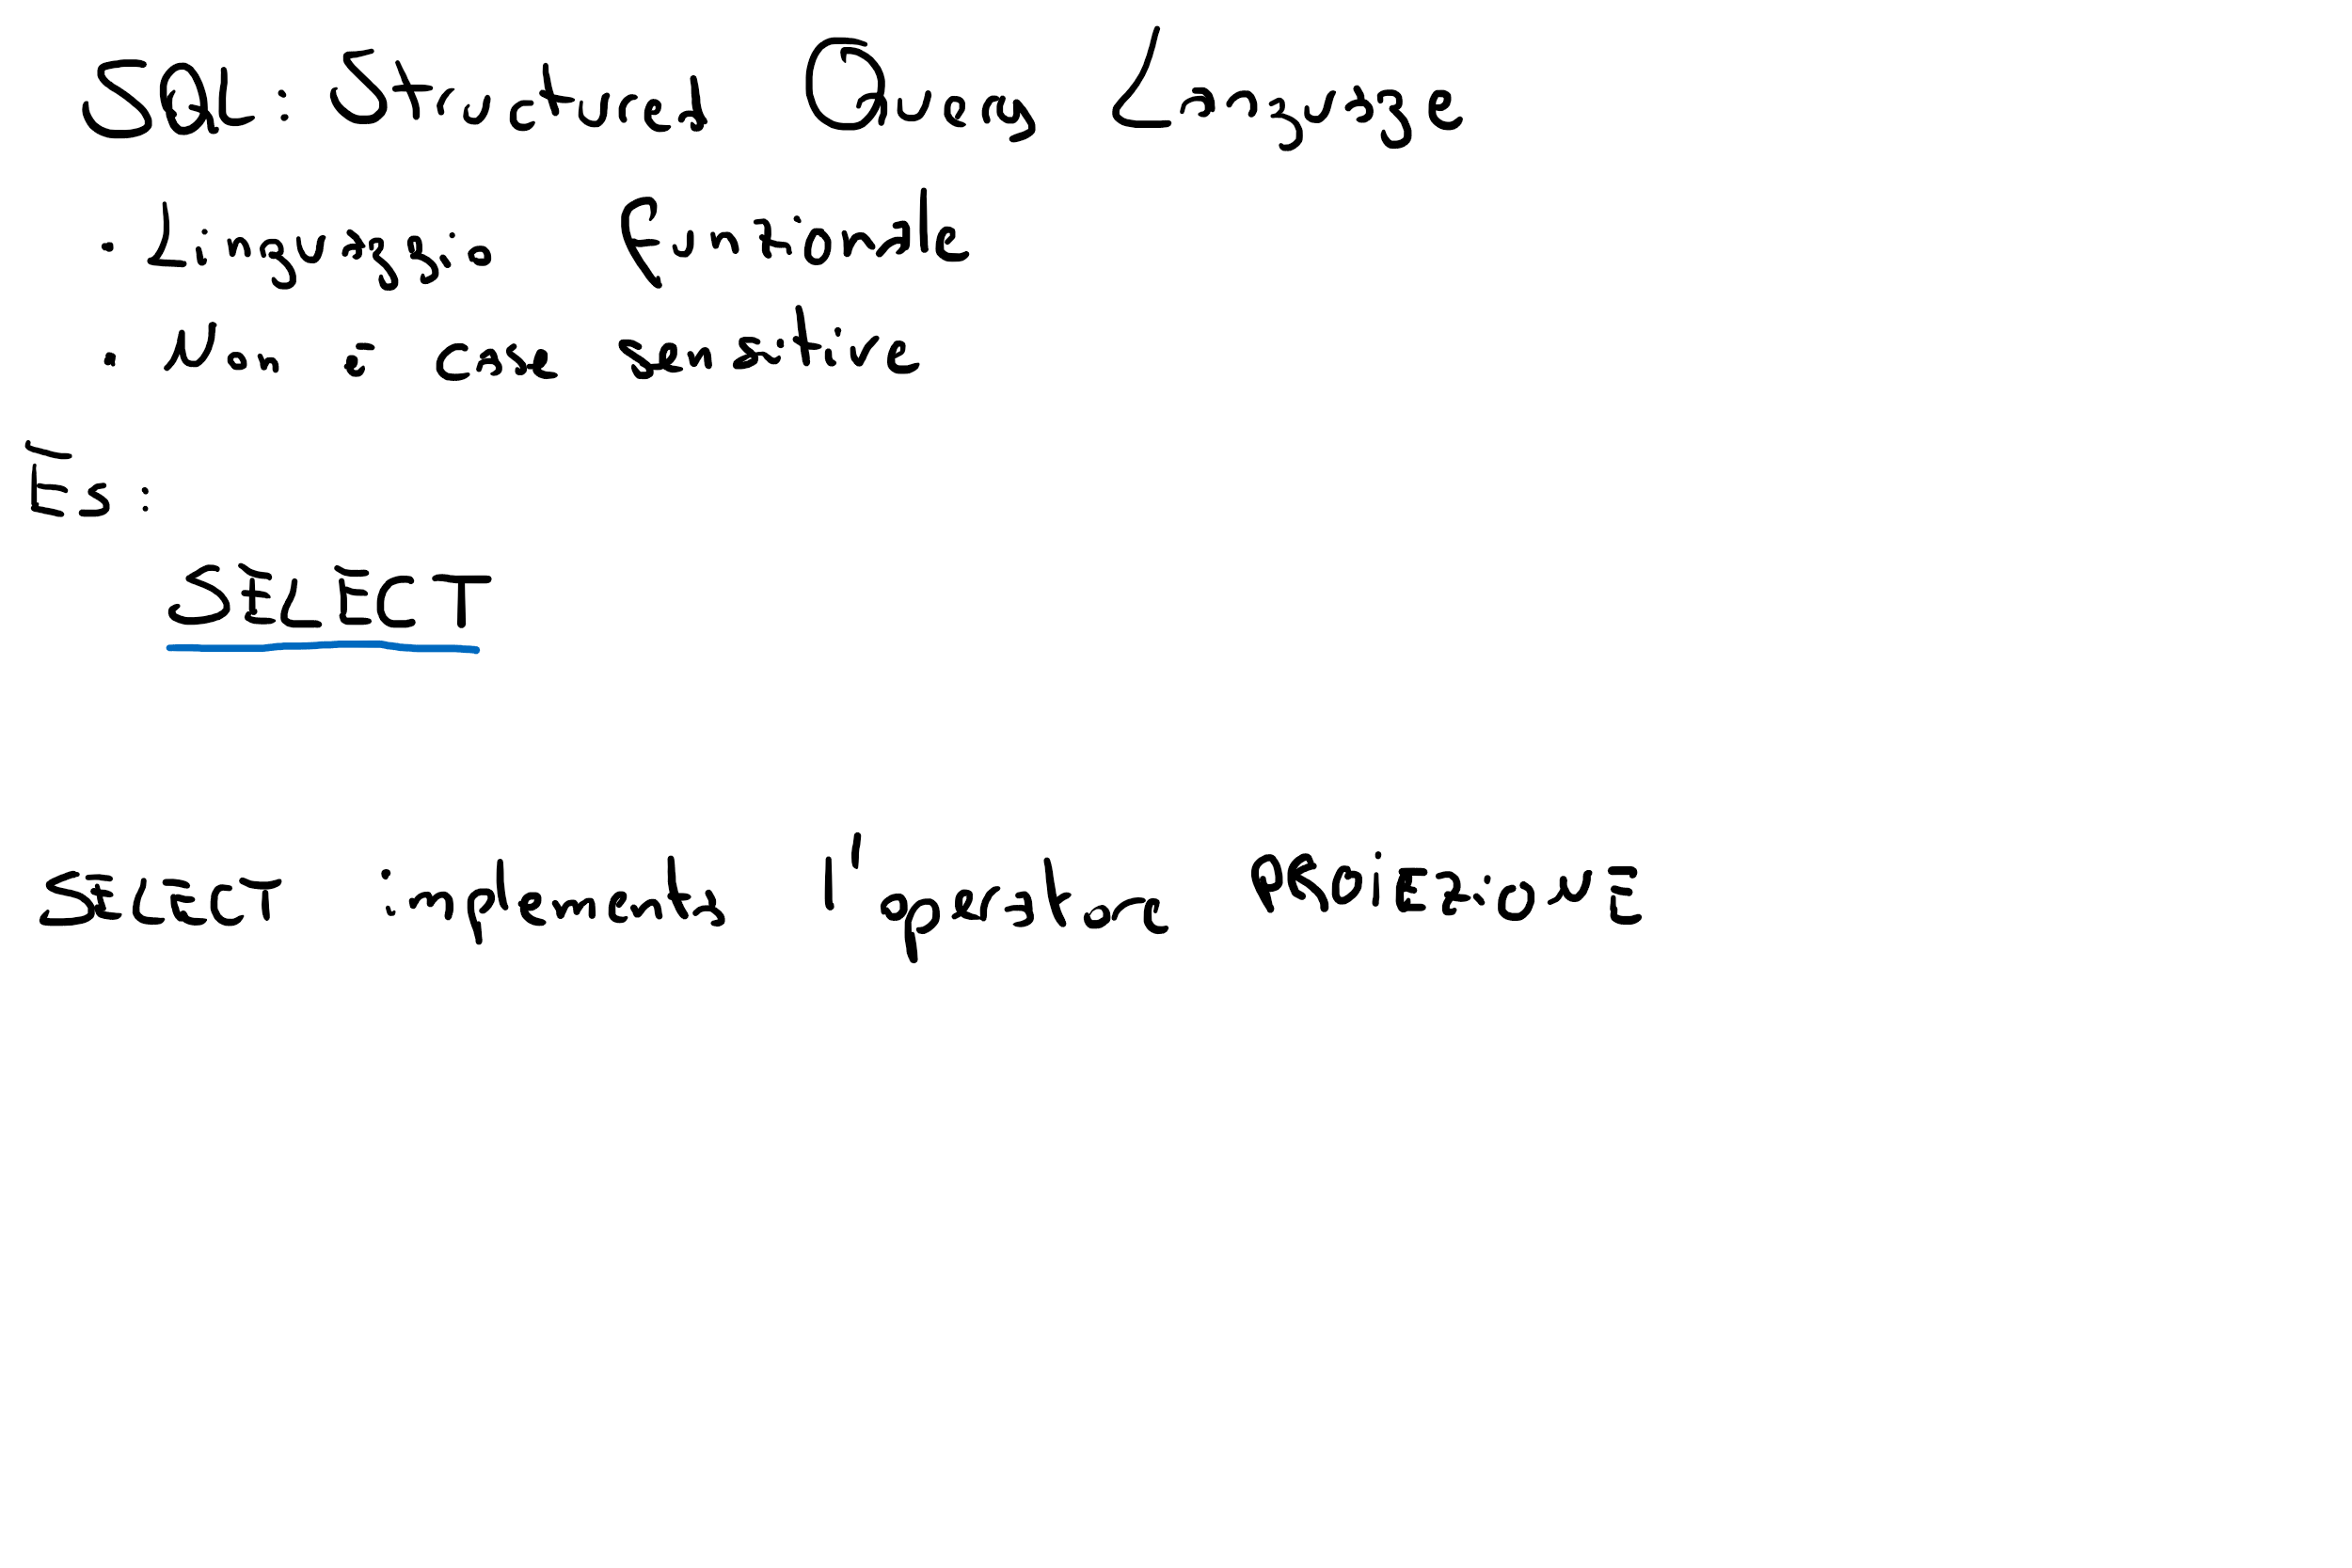 SQL: Structured Query Language
· Linguaggio funzionale
· Non è case sensitive
Es:
SELECT
SELECT implementa l'operatore PROIEZIONE